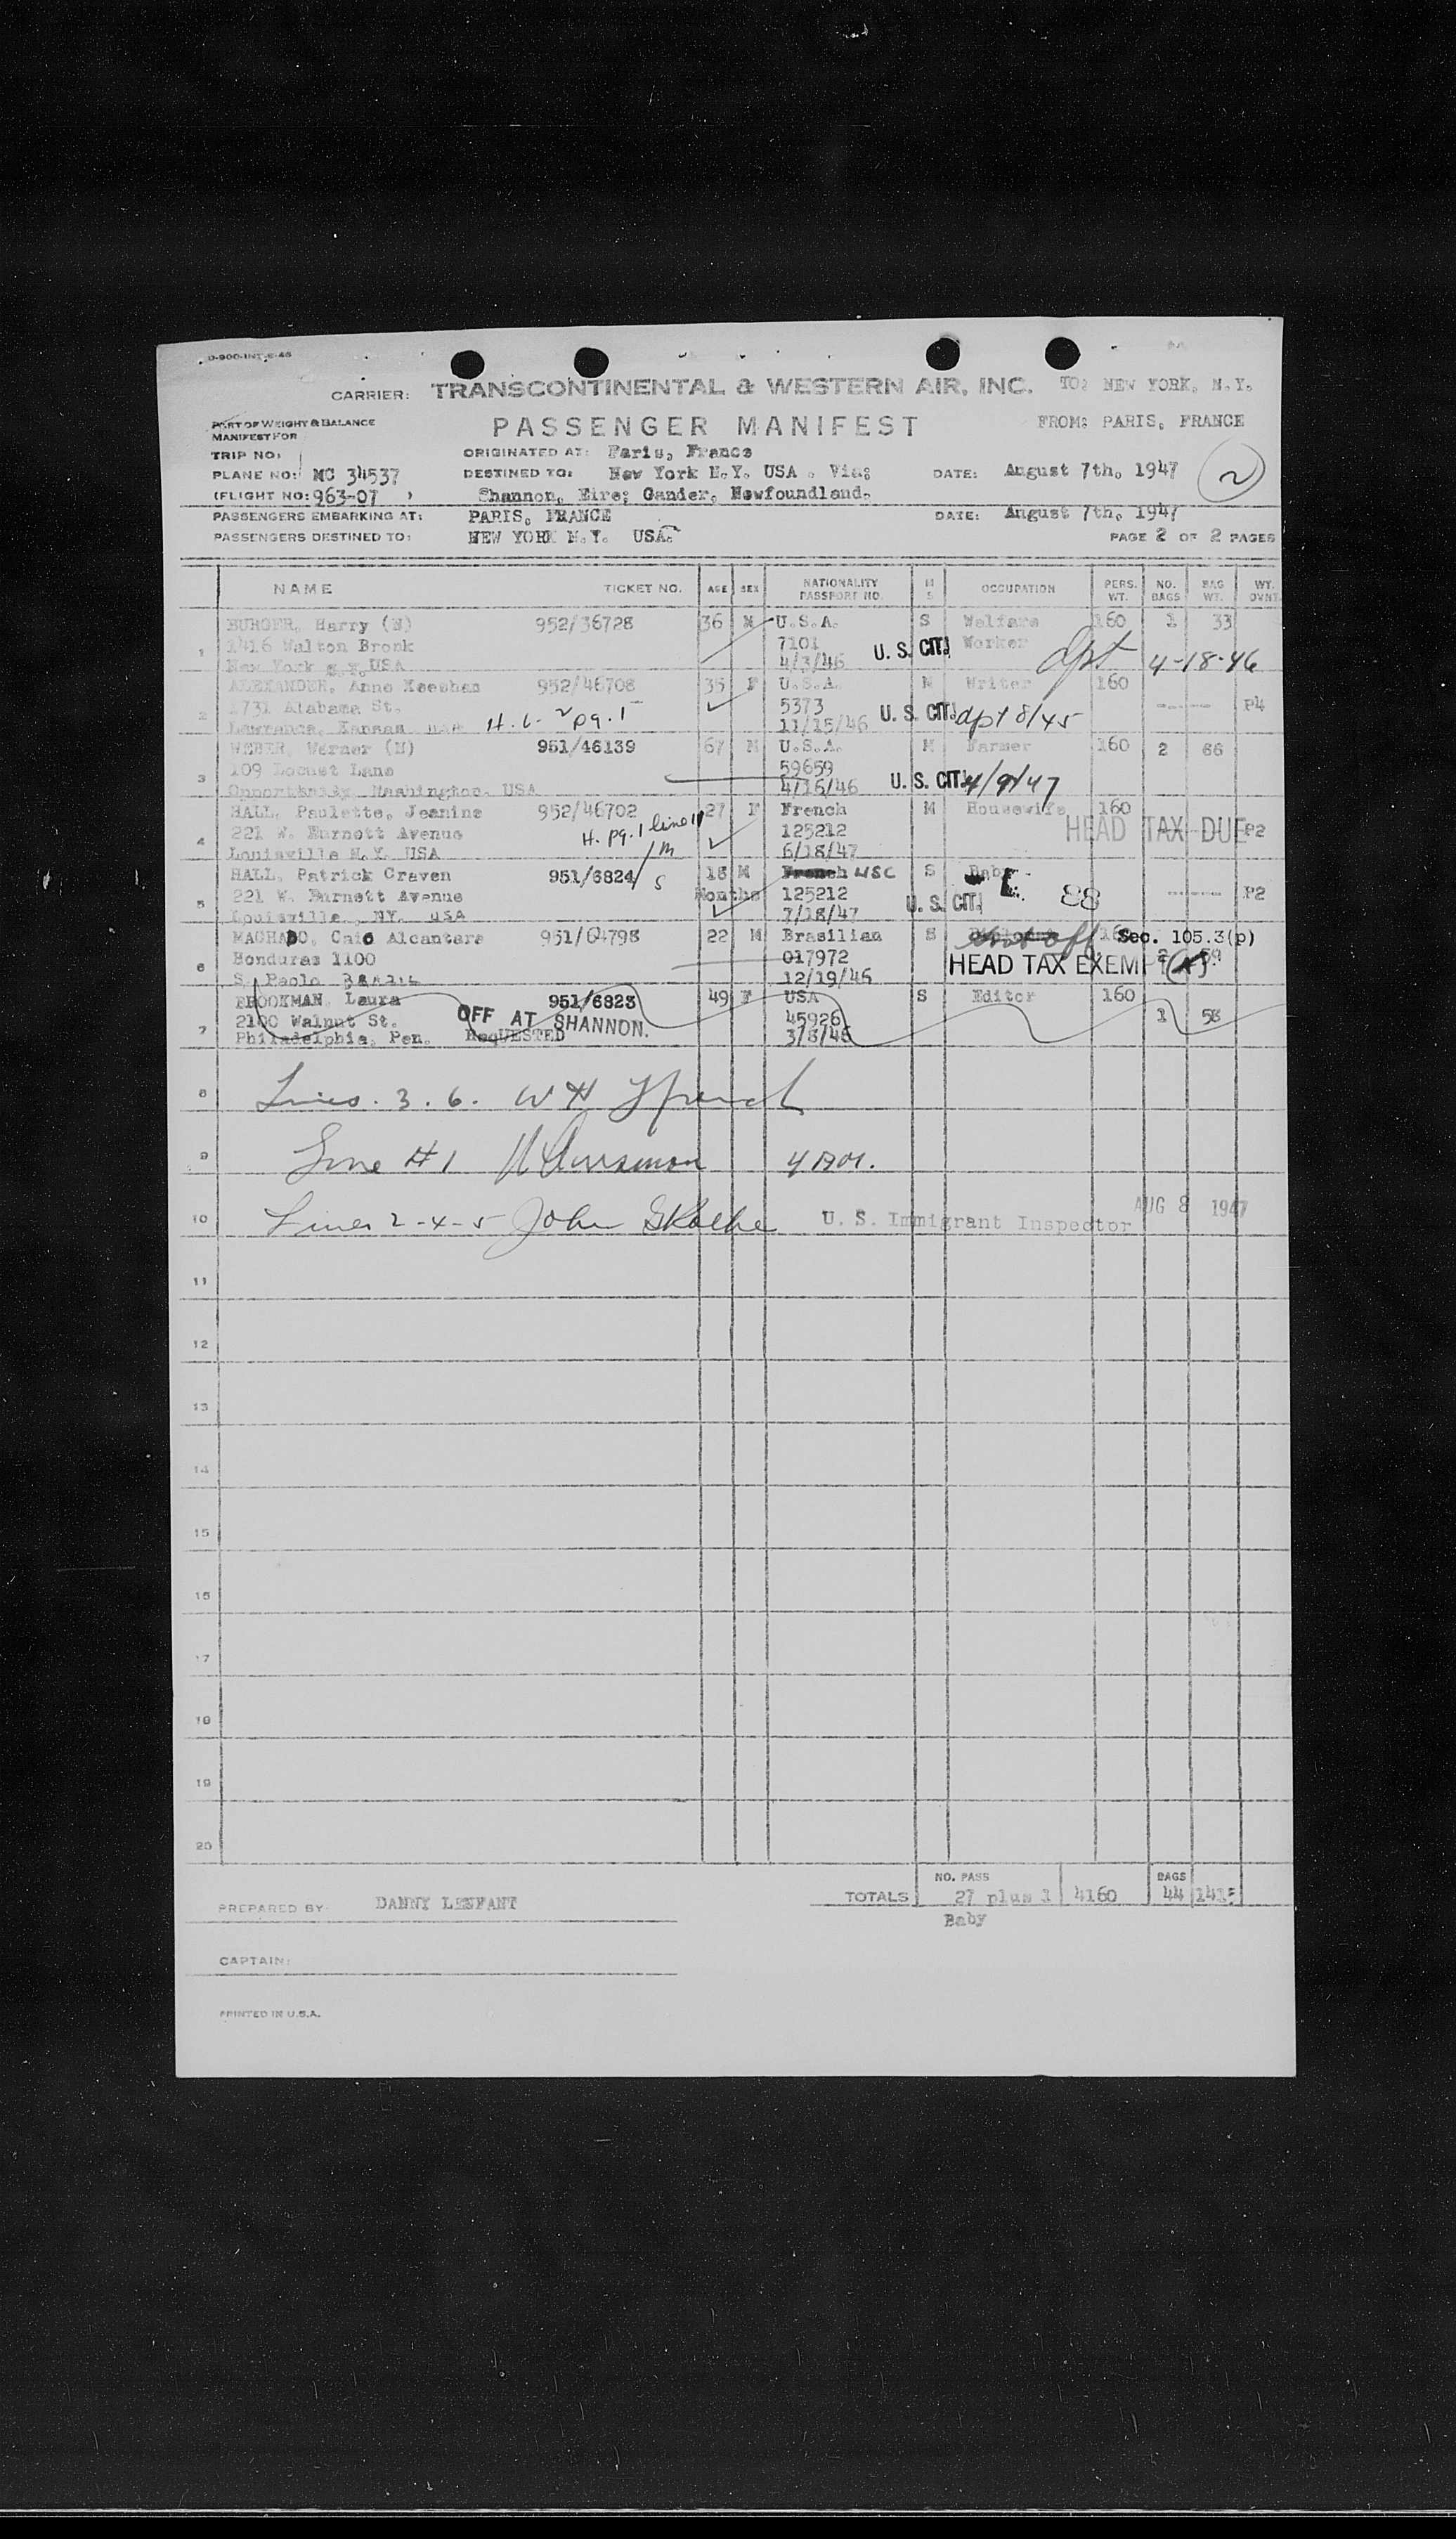 O-900-INT-5-46
CARRIER: TRANSCONTINENTAL & WESTERN AIR, INC. TO: NEW YORK, N.Y.
PART OF WEIGHT & BALANCE
MANIFEST FOR
PASSENGER MANIFEST FROM: PARIS, FRANCE
TRIP NO: ORIGINATED AT: Paris, France
PLANE NO: NC 34537 DESTINED TO: New York N.Y. USA . Via: DATE: August 7th, 1947 2
(FLIGHT NO: 963-07 ) Shannon, Eire; Gander, Newfoundland.
PASSENGERS EMBARKING AT: PARIS, FRANCE DATE: August 7th, 1947
PASSENGERS DESTINED TO: NEW YORK N.Y. USA. PAGE 2 OF 2 PAGES
NAME TICKET NO. AGE SEX NATIONALITY PASSPORT NO. M S OCCUPATION PERS. WT. NO. BAGS BAG WT. WT. OVNT
BURGER, Harry (N) 952/36728 36 M U.S.A. S Welfare 160 1 33
1 1416 Walton Bronk 7101 U. S. CIT. Worker dpt 4-18-46
New York N.Y. USA 4/3/46
ALEXANDER, Anne Keeshan 952/46708 35 F U.S.A. M Writer 160
2 1731 Alabama St. 5373 P4
Lawrence, Kansas USA H. L. 2 pg. 1 11/15/46 U. S. CIT. dpt 8/45
WEBER, Werner (N) 951/46139 67 M U.S.A. M Farmer 160 2 66
3 109 Locust Lane 59659
Opportunity Washington. USA 4/16/46 U. S. CIT. 4/9/47
HALL, Paulette, Jeanine 952/46702 27 F French M Housewife 160
4 221 W. Burnett Avenue H. pg. 1 line 11 125212 HEAD TAX DUE P2
Louisville N.Y. USA 6/18/47
HALL, Patrick Craven 951/6824 18 M French USC S Baby
5 221 W. Burnett Avenue Months 125212 U. S. CIT. 88 P2
Louisville NY. USA 7/18/47
MACHADO, Caio Alcantara 951/04798 22 M Brasilian S 160 Sec. 105.3(p)
6 Honduras 1100 017972 HEAD TAX EXEMPT 2 59
S. Paolo BRAZIL 12/19/46
BROOKMAN, Laura 951/6823 49 F USA S Editor 160
7 2100 Walnut St. OFF AT SHANNON. 45926 1 58
Philadelphia, Pen. ReqUESTED 3/8/46
8 Lines. 3. 6. W H French
9 Line #1
10 Lines 2-4-5 John U. S. Immigrant Inspector AUG 8 1947
11
12
13
14
15
16
17
18
19
20
NO. PASS BAGS
PREPARED BY DANNY LENFANT TOTALS 27 plus 1 4160 44 1415
Baby
CAPTAIN:
PRINTED IN U.S.A.